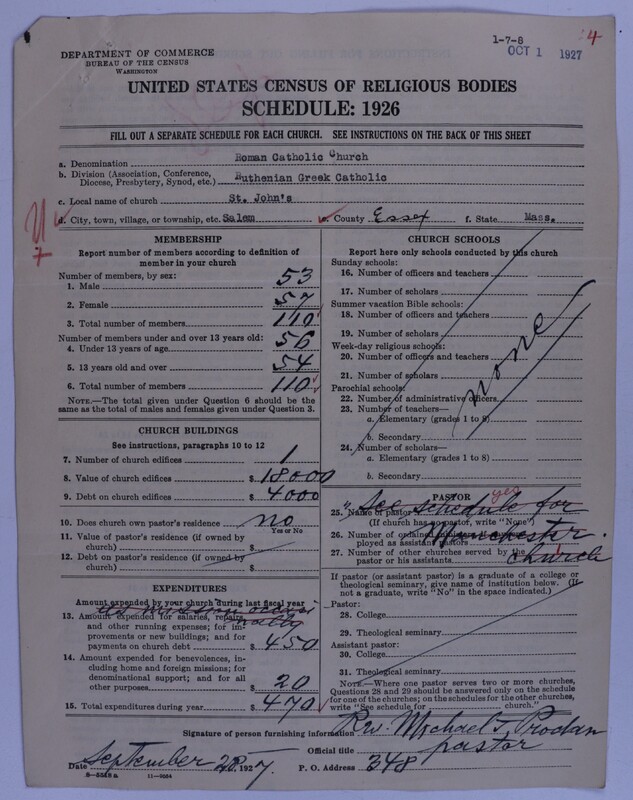 1-7-8
OCT 1 1927
4
DEPARTMENT OF COMMERCE
BUREAU OF THE CENSUS
WASHINGTON
UNITED STATES CENSUS OF RELIGIOUS BODIES
SCHEDULE: 1926
FILL OUT A SEPARATE SCHEDULE FOR EACH CHURCH. SEE INSTRUCTIONS ON THE BACK OF THIS SHEET
a. Denomination Roman Catholic Church
b. Division (Association, Conference, Diocese, Presbytery, Synod, etc.) Ruthenian Greek Catholic
c. Local name of church St. John's
d. City, town, village, or township, etc. Salem e. County Essex f. State Mass.
MEMBERSHIP
Report number of members according to definition of
member in your church
Number of members, by sex:
1. Male 53
2. Female 57
3. Total number of members 110
Number of members under and over 13 years old:
4. Under 13 years of age 56
5. 13 years old and over 54
6. Total number of members 110
NOTE.—The total given under Question 6 should be
same as the total of males and females given under Question 3.
CHURCH BUILDINGS
See instructions, paragraphs 10 to 12
7. Number of church edifices 1
8. Value of church edifices $ 18000
9. Debt on church edifices $ 4000
10. Does church own pastor's residence no
Yes or No
11. Value of pastor's residence (if owned by
church) $
12. Debt on pastor's residence (if owned by
church) $
EXPENDITURES
Amount expended by your church during last fiscal year
13. Amount expended for salaries, repairs,
and other running expenses; for im-
provements or new buildings; and for
payments on church debt $ 450
14. Amount expended for benevolences,
including home and foreign missions; for
denominational support; and for all
other purposes $ 20
15. Total expenditures during year $ 470
CHURCH SCHOOLS
Report here only schools conducted by this church
Sunday schools:
16. Number of officers and teachers
17. Number of scholars
Summer vacation Bible schools:
18. Number of officers and teachers
19. Number of scholars
Week-day religious schools:
20. Number of officers and teachers
21. Number of scholars
none
Parochial schools:
22. Number of administrative officers
23. Number of teachers—
a. Elementary (grades 1 to 8)
b. Secondary
24. Number of scholars—
a. Elementary (grades 1 to 8)
b. Secondary
PASTOR
yes
25. Name of pastor "See schedule for
(If church has no pastor, write "None")
26. Number of ordained
ployed as assistant pastors Manchester
27. Number of other churches served by the
pastor or his assistants church
If pastor (or assistant pastor) is a graduate of a college or
theological seminary, give name of institution below. (If
not a graduate, write "No" in the space indicated.)
Pastor:
28. College
29. Theological seminary
Assistant pastor:
30. College
31. Theological seminary
NOTE.—Where one pastor serves two or more churches,
Questions 28 and 29 should be answered only on the schedule
for one of the churches; on the schedules for the other churches,
write "See schedule for church."
Signature of person furnishing information Rev. Michael J. Prodan
Official title pastor
Date September 28, 1927. P. O. Address 348
11—9564